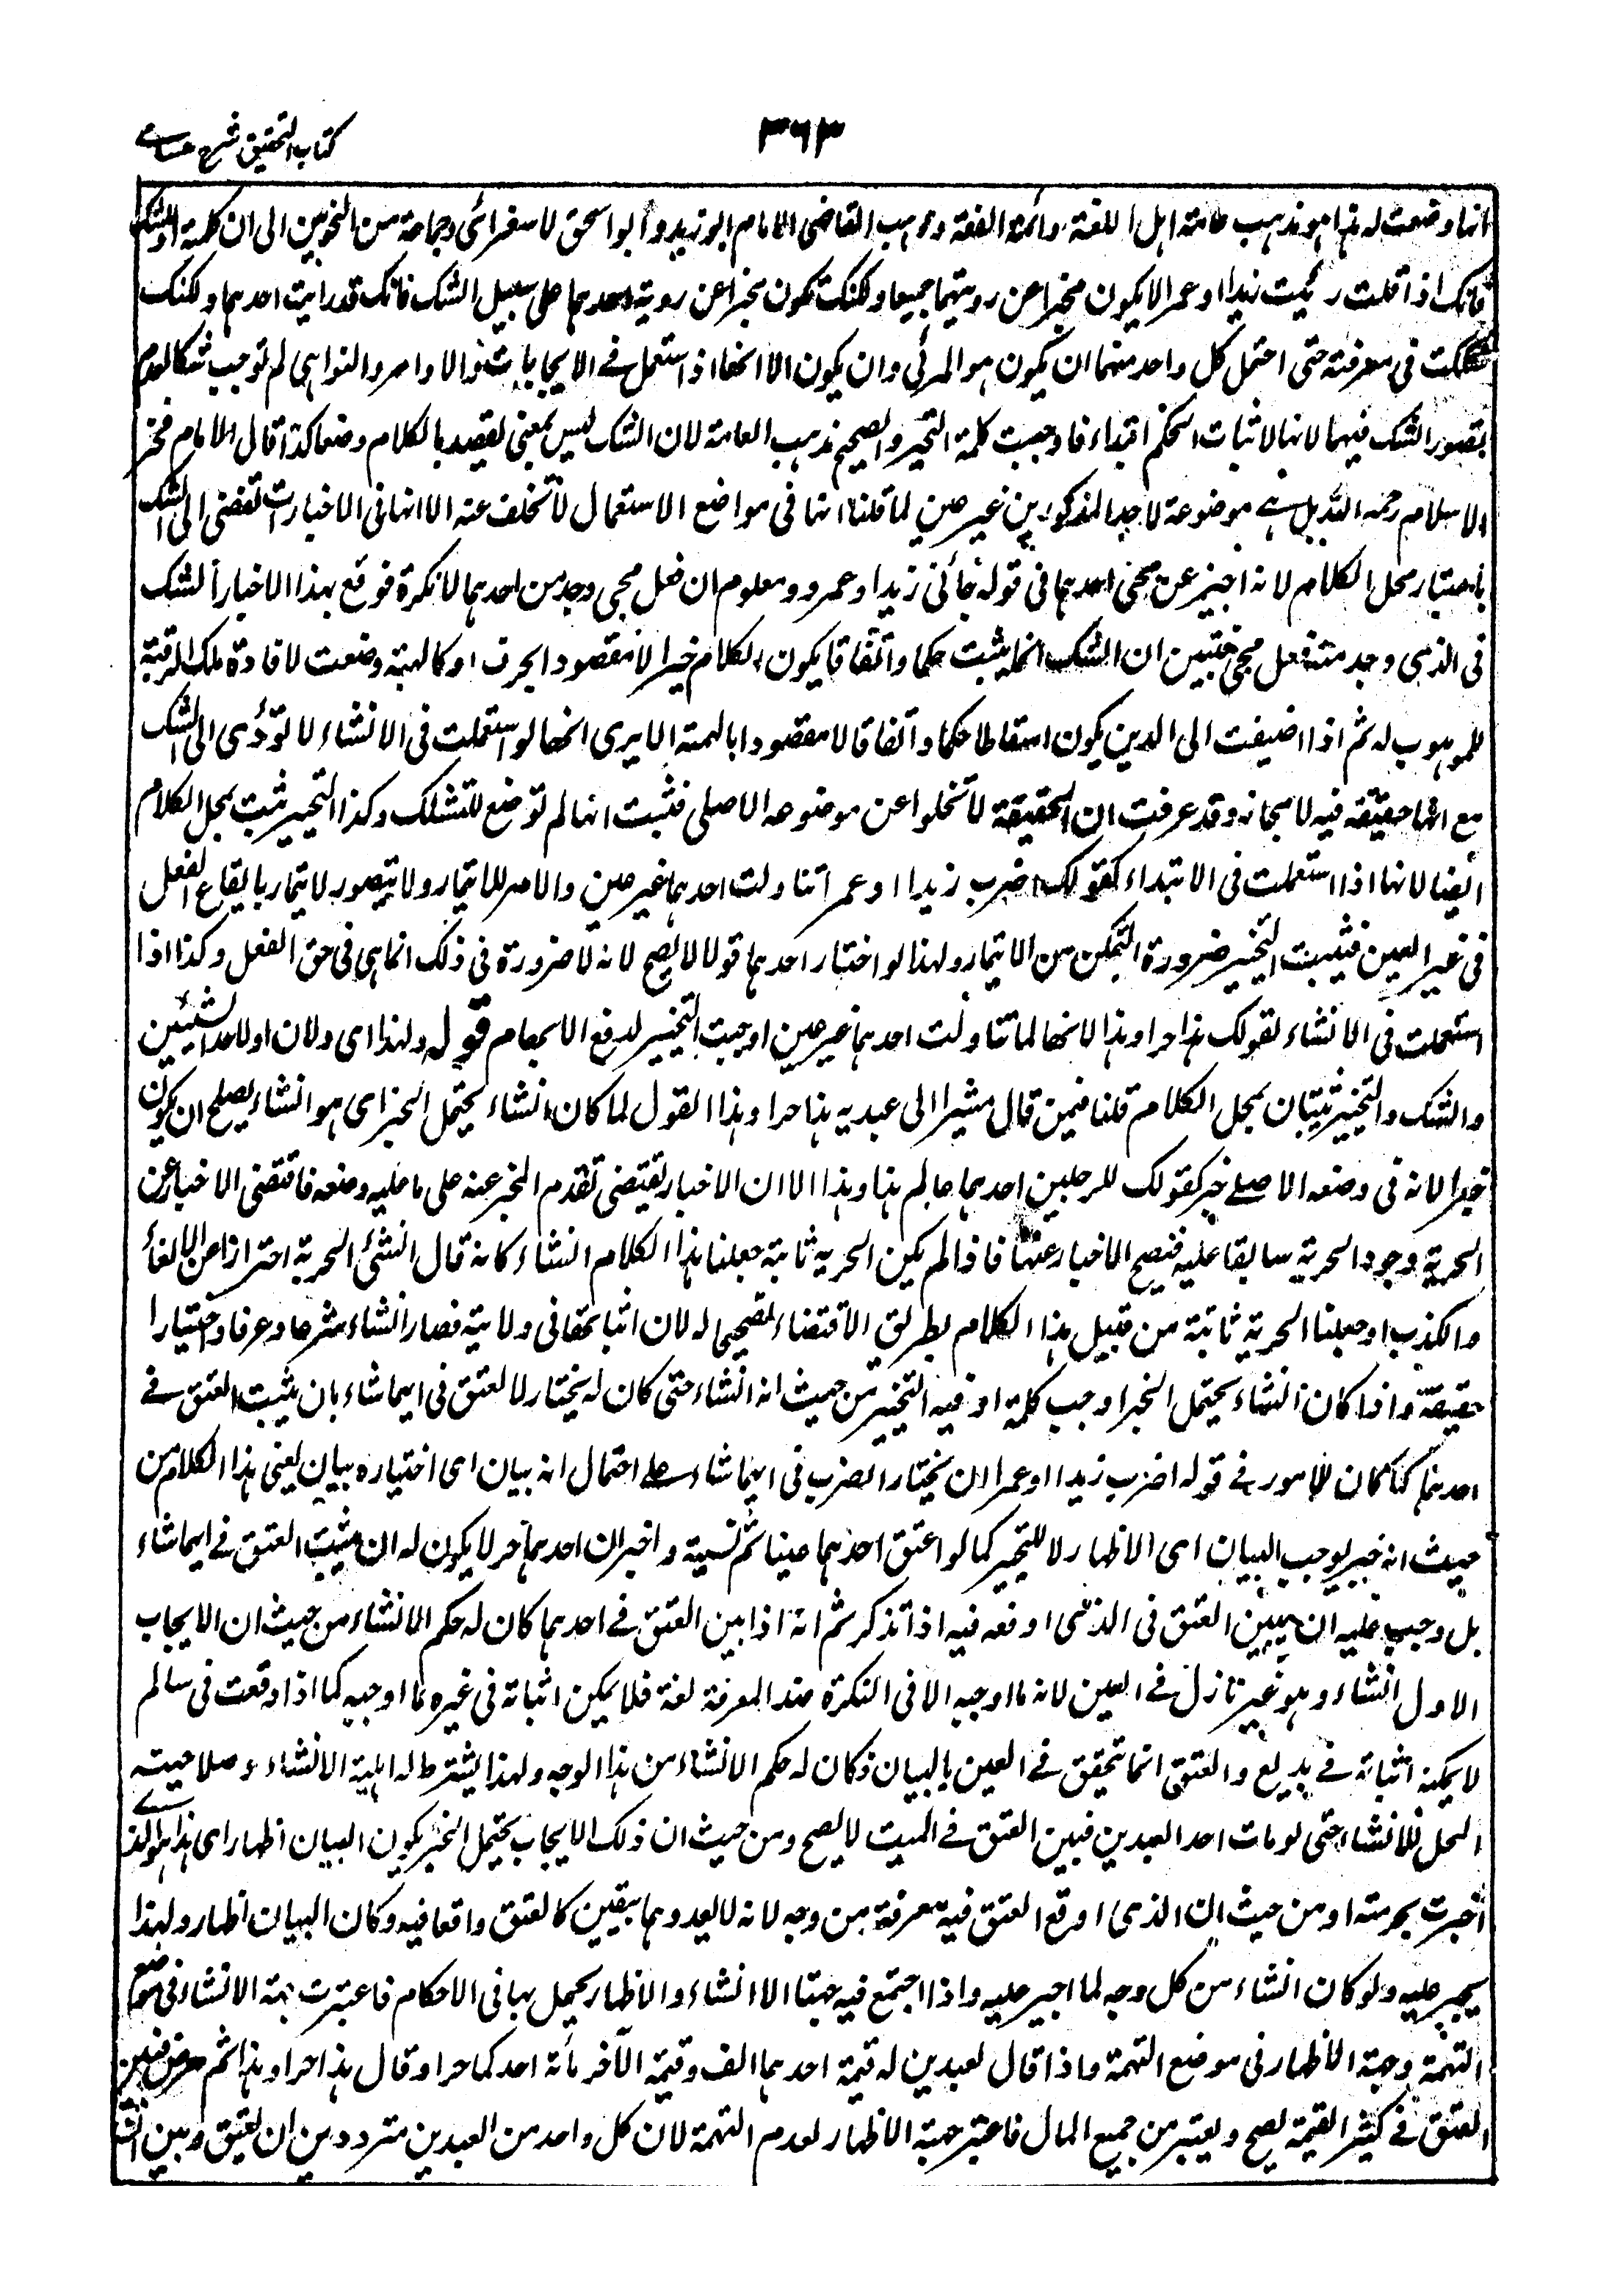 كتاب التحقيق شرح حسامے
٣٦٣
انها وضعت له هذا هو مذهب عامة اهل اللغة وائمة الفقة وذهب القاضى الامام ابو زيد وابو اسحق لاسفرائى وجماعة من النحويين الى ان كلمة او للشك
فانك اذا قلت رئيت زيدا او عمرا لا يكون مخبرا عن رويتهما جميعا ولكنك تكون مخبرا عن روية احدهما على سبيل الشك فانك قد رايت احدهما ولكنك
شككت فى معرفته حتى احتمل كل واحد منهما ان يكون هو المرئى وان يكون الا انها اذا استعمل فے الايجابات والاوامر والنواهى لم توجب شكا لعدم
تصور الشك فيها لانها لاثبات الحكم ابتداء فاوجبت كلمة التخير والصحيح مذهب العامة لان الشك ليس بمعنى يقصد بالكلام وضعا كذا قال الامام فخر
الاسلام رحمه الله بل هے موضوعة لاحد المذكورين غير عين لما قلنا انها فى مواضع الاستعمال لا تخلف عنه الا انها فى الاخبارات تفضى الى الشك
باعتبار محل الكلام لانه اخبر عن مجئ احدهما فى قوله جائنى زيد او عمرو ومعلوم ان فعل مجى وجد من احدهما لا نكرة فوقع بهذا الاخبار الشك
فى الذى وجد منه فعل مجئ فتبين ان الشك انما يثبت حكما واتفاقا يكون الكلام خبرا لا مقصودا بحرف او كالهبة وضعت لافادة ملك الرقبة
للموهوب له ثم اذا اضيفت الى الدين يكون اسقاطا حكما واتفاقا لا مقصودا بالهبة الا يرى انها لو استعملت فى الانشاء لا تؤدى الى الشك
مع انها حقيقة فيه لا مجازه وقد عرفت ان الحقيقة لا تخلوا عن موضوعه الاصلى فثبت انها لم توضع للتشكك وكذا التخير يثبت بمحل الكلام
ايضا لانها اذا استعملت فى الابتداء كقولك اضرب زيدا او عمرا تناولت احدهما غير عين والامر للايتمار ولا يتصور لايتمار بايقاع الفعل
فى غير العين فثبت التخير ضرورة التمكن من الايتمار ولهذا لو اختار احدهما قولا لا يصح لانه لا ضرورة فى ذلك انما هى فى حق الفعل وكذا اذا
استعملت فى الانشاء لقولك هذا حر او هذا لانها لما تناولت احدهما غير عين اوجبت التخيير لدفع الابهام قوله ولهذا اى ولان او لاحد الشيئين
والشك والتخيير يثبتان بمحل الكلام قلنا فيمن قال مشيرا الى عبديه هذا حر او هذا القول لما كان انشاء يحتمل الخبر اى هو انشاء يصلح ان يكون
خبرا لانه فى وضعه الاصلے خبر كقولك للرجلين احدهما عالم هذا وهذا الا ان الاخبار يقتضى تقدم المخبر عنه على ما عليه وضعه فاقتضى الاخبار عن
الحرية وجود الحرية سابقا عليه فيصح الاخبار عنها فاذا لم يكن الحرية ثابتة جعلنا هذا الكلام انشاء كانه قال انشئ الحرية احترازا عن الالغاء
والكذب او جعلنا الحرية ثابتة من قبيل هذا الكلام بطريق الاقتضاء تصحيحا له لان اثباتها فى ولايته فصار انشاء شرعا وعرفا واختيارا
حقيقة واذا كان انشاء يحتمل الخبر اوجب كلمة او فيه التخيير من حيث انه انشاء حتى كان له يختار لا لعتق فى ايهما شاء بان يثبت العتق فے
احدهما كما كان للامور فے قوله اضرب زيدا او عمرا ان يختار الضرب فى ايهما شاء على احتمال انه بيان اى اختياره بيان يعنى هذا الكلام من
حيث انه خبر يوجب البيان اى الاظهار لا للتخير كما لو اعتق احدهما عينا ثم نسية واخبر ان احدهما حر لا يكون له ان يثبت العتق فے ايهما شاء
بل وجب عليه ان يبين العتق فى الذى اوقعه فيه اذا تذكر ثم انه اذا بين العتق فے احدهما كان له حكم الانشاء من حيث ان الايجاب
الاول انشاء وهو غير نازل فے العين لانه ما اوجبه الا فى النكرة ضد المعرفة لغة فلا يمكن اثباته فى غيره ما اوجبه كما اذا وقعت فى سالم
لا يمكنه اثباته فے بديع والعتق انما يتحقق فے العين بالبيان فكان له حكم الانشاء من هذا الوجه ولهذا يشترط له اهلية الانشاء وصلاحيته
المحل للانشاء حتى لو مات احد العبدين فبين العتق فے الميت لا يصح ومن حيث ان ذلك الايجاب يحتمل الخبر يكون البيان اظهارا اى هذا هو الذے
اخبرت بحريته او من حيث ان الذى اوقع العتق فيه معرفة من وجه لانه لا يعدوهما بيقين كالعتق واقعا فيه وكان البيان اظهارا ولهذا
يجبر عليه ولو كان انشاء من كل وجه لما اجبر عليه واذا اجتمع فيه جهتا الا انشاء والاظهار يحمل بها فى الاحكام فاعتبرت جهة الانشاء فى موضع
التهمة وجهة الاظهار فى موضع التهمة واذا قال لعبدين له قيمة احدهما الف وقيمة الآخر مائة احدكما حر او قال هذا حر او هذا ثم مرض فبين
العتق فے كثير القيمة يصح ويعتبر من جميع المال فاعتبر جهة الاظهار لعدم التهمة لان كل واحد من العبدين متردد بين ان يعتق وبين ان